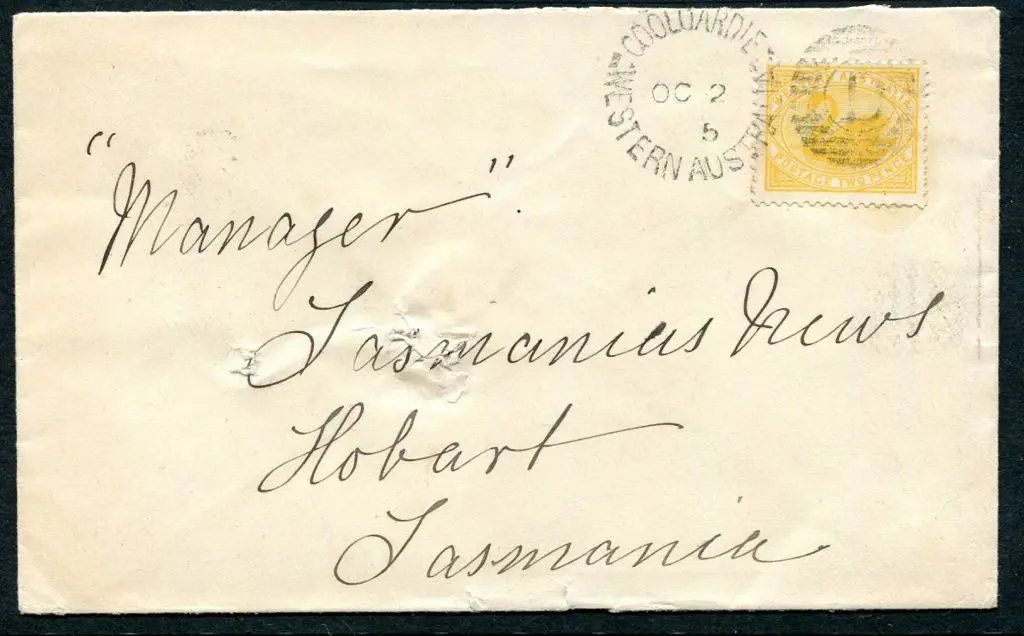 COOLGARDIE
WESTERN AUSTRALIA
OC 2
5
AUSTRALIA
POSTAGE TWO PENCE
"Manager".
Tasmanias News
Hobart
Tasmania